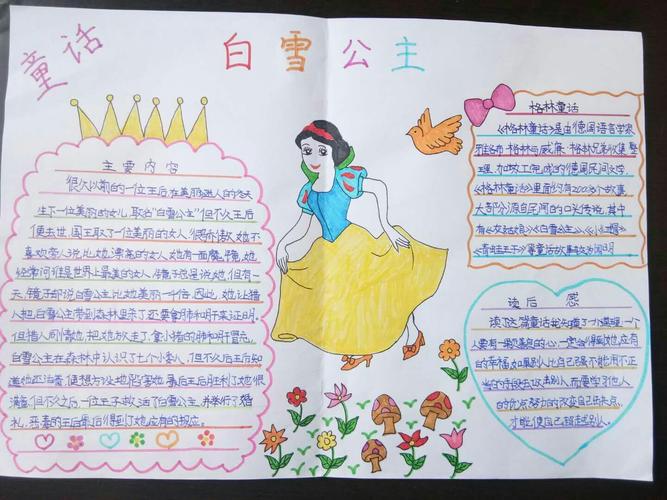 童话
白雪公主
主要内容
很久以前的一位王后在美丽迷人的冬天
生下一位美丽的女儿,取名"白雪公主"但不久王后
便去世,国王取了一位美丽的女人很骄傲,她不
喜欢旁人说比她漂亮的女人她有面魔镜,她
经常问谁是世界上最美的女人,镜子总是说她,但有一
天,镜子却说白雪公主比她美丽一千倍。因此,她让猎
人把白雪公主带到森林里杀了还要拿肺和肝来证明,
但猎人同情她,把她放走了,拿小猪的肺和肝冒充。
白雪公主在森林中认识了七个小矮人,但不久后王后知
道她还活着,便想方设法地陷害她,最后王后胜利了她很
满意,但不久之后,一位王子救活了白雪公主,并举行了婚
礼,恶毒的王后最后得到了她应有的报应。
格林童话
《格林童话》是由德国语言学家
雅各布·格林与威廉·格林兄弟收集、整
理、加工完成的德国民间文学。
《格林童话》里面约有200多个故事
大部分源自民间的口头传说,其中
有《灰姑娘》《白雪公主》《小红帽》
《青蛙王子》等童话故事较为闻明
读后感
读了这篇童话我知道了一个道理,一个
人要有一颗美良的心,一定会得到她应有
的幸福,如果别人比自己强不能用不正
当的手段去攻击别人,而要学习他人
的优点努力的改变自己的缺点,
才能使自己超越别人。